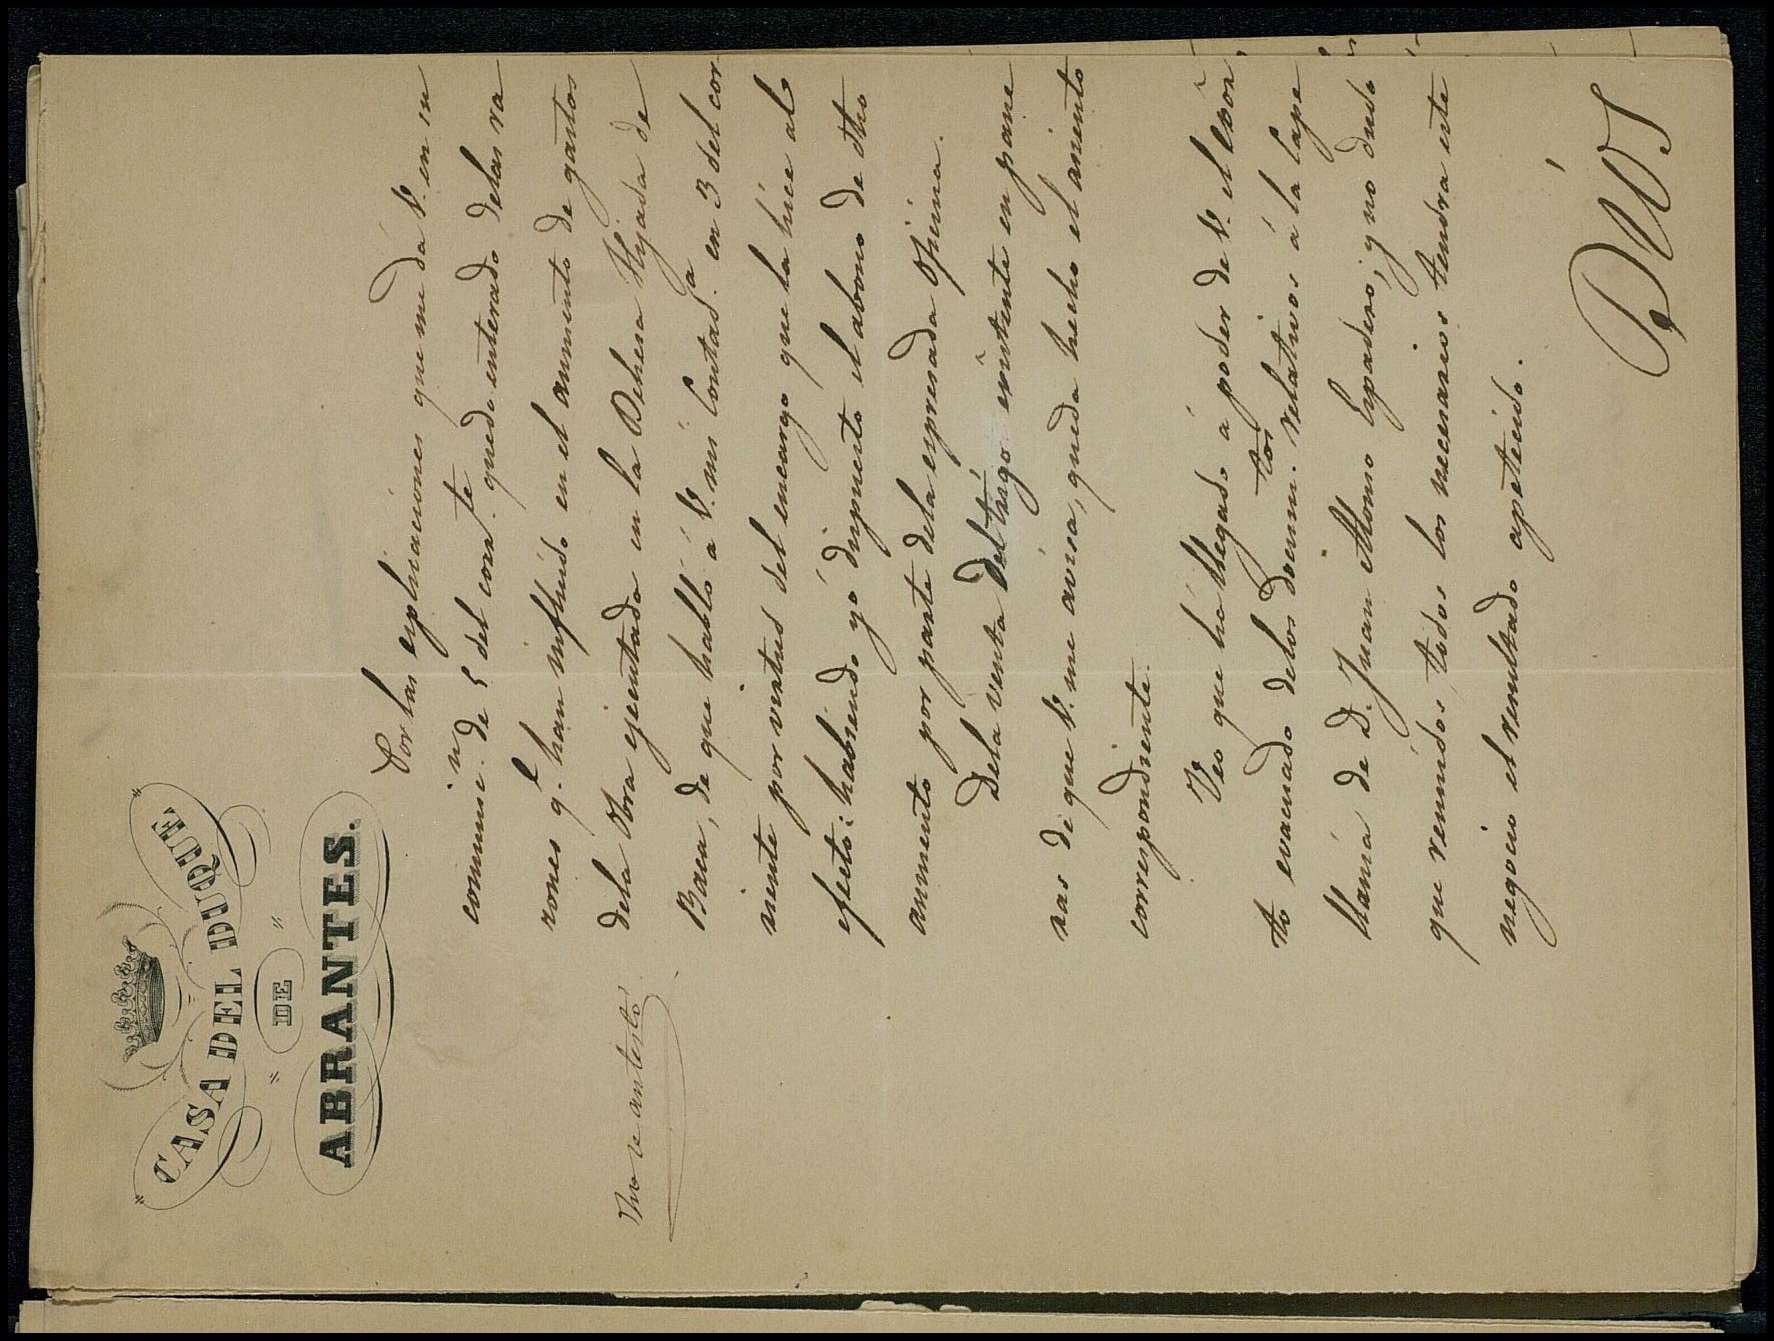 CASA DEL DUQUE
DE
ABRANTES.
Por las esplicaciones que me dá V. en su
comunic.n de 5 del corr.te quedo enterado delas ra
zones q.e han influido en el aumento de gastos
dela Obra ejecutada en la Dehesa Hijada de
Baea, de que habló á V. mi Contad.a en 3 del cor-
riente por virtud del encargo que la hice al
efecto: habiendo yó dispuesto el abono de dho
aumento por parte dela espresada Oficina.
Dela venta del trigo existente en pane
ras de que V. me avisa, queda hecho el asiento
correspondiente.
Veo que há llegado á poder de V. el
to evacuado delos docum.tos relativos á la Cape
llanía de D. Juan Alonso Espadero; y no dudo
que reunidos todos los necesarios tendra este
negocio el resultado apetecido.
No se contestó